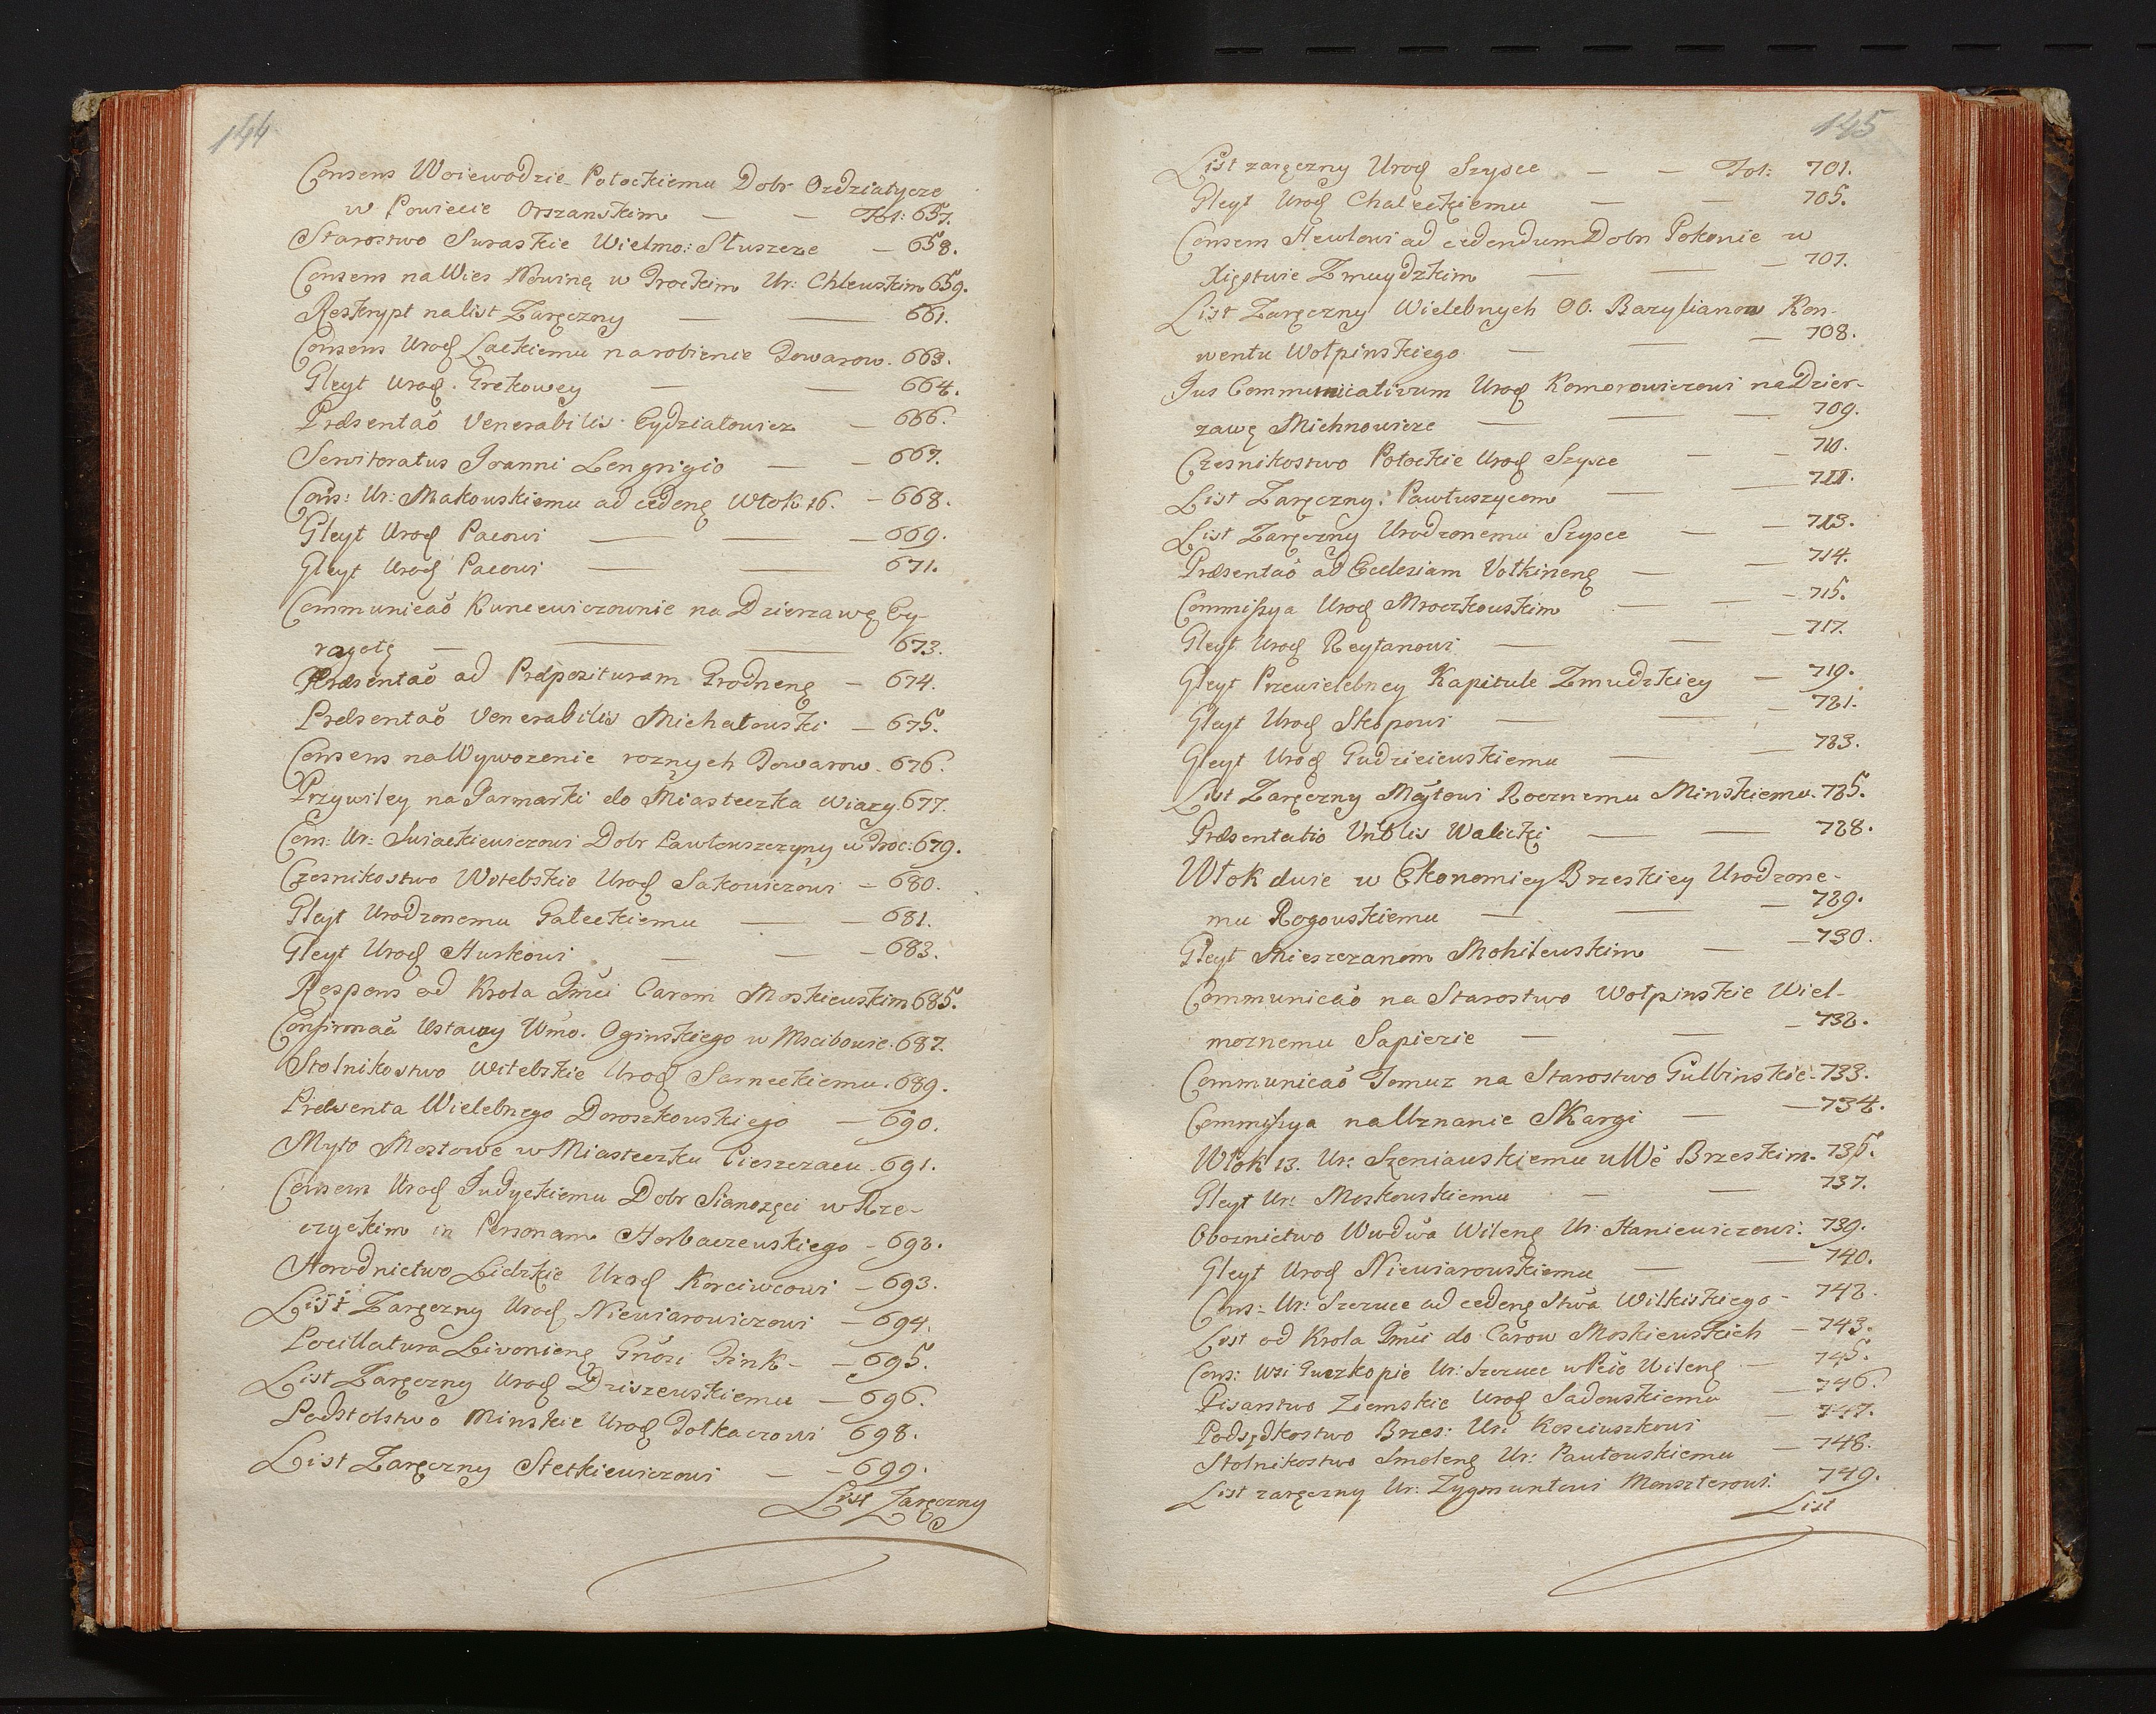 144
Consens Woiewodzie Połockiemu Dobr Ozdziatycze
w Powiecie Orszanskim — — Fol: 657.
Starostwo Suraskie Wielmo: Słuszcze — 658.
Consens na Wies Nowinę w Trockim Ur: Chlewskim 659.
Reskrypt na list Zaręczny — — 661.
Consens Urod Lackiemu na robienie Towarow. 663.
Gleyt Urod. Grekowey — — 664.
Præsentaõ Venerabilis Cydzialowicz — 666.
Servitoratus Joanni Lengrigio — — 667.
Cons: Ur: Makowskiemu ad cedenę Włok 16. — 668.
Gleyt Urod Pacowi — — — 669.
Gleyt Urod Pacowi — — 671.
Communicaõ Kuncewiczownie na Dzierzawę Cy-
ragołę — — — 673.
Præsentaõ ad Præposituram Grodnenę — 674.
Præsentaõ Venerabilis Michałowski — 675.
Consens na Wywozenie roznych Towarow. 676.
Przywiley na Jarmarki do Miasteczka Wiazy. 677.
Con: Ur: Swiackiewiczowi Dobr Pawłowszczyny w Troc: 679.
Czesnikostwo Witebskie Urod Sakowiczowi — 680.
Gleyt Urodzonemu Gałeckiemu — — 681.
Gleyt Urod Hurkowi — — — 683.
Respons od Krola Jmći Carom Moskiewskim 685.
Confirmaõ Ustawy Wmo. Oginskiego w Mscibowie. 687.
Stolnikostwo Witebskie Urod Sarneckiemu. 689.
Præsenta Wielebnego Doroszkowskiego — 690.
Myto Mostowe w Miasteczku Cieszczacu. 691.
Consens Urod Judyckiemu Dobr Sianozęci w Rze-
czyckim in Personam Horbaczewskiego — 692.
Horodnictwo Lidzkie Urod Korciwcowi — 693.
List Zaręczny Urod Niewiarowiczowi — 694.
Pocillatura Livonienę Gñosi Fink — — 695.
List Zaręczny Urod Dziszewskiemu — 696.
Podstolstwo Minskie Urod Tolkaczowi 698.
List Zaręczny Stetkiewiczowi — — 699.
List Zaręczny
145
List zaręczny Urod Szysce — — Fol: 701.
Gleyt Urod Chaleckiemu — — 705.
Consens Hewlowi ad cedendum Dobr Pokonie w
Xięstwie Zmuydzkim — — — 707.
List Zaręczny Wielebnych OO. Bazylianow Kon-
wentu Wołpinskiego — — — 708.
Jus Communicativum Urod Komorowiczowi na Dzier-
zawę Michnowicze — — — 709.
Czesnikostwo Połockie Urod Szysce — — 710.
List Zaręczny Pawłuszycom — — 711.
List Zaręczny Urodzonemu Szysce — — 713.
Præsentaõ ad Ecclesiam Vołkinenę — — 714.
Commissya Urod Mroczkowskim — — — 715.
Gleyt Urod Reytanowi — — — 717.
Gleyt Przewielebney Kapitule Zmudzkiey — 719.
Gleyt Urod Skopowi — — — 721.
Gleyt Urod Gudzieiewskiemu — — 723.
List Zaręczny Mayłowi Rocznemu Minskiemu. 725.
Præsentatio Vnblis Walicki — — 728.
Włok dwie w Ekonomiey Brzeskiey Urodzone-
mu Rogowskiemu — — — 729.
Gleyt Mieszczanom Mohilewskim — — 730.
Communicaõ na Starostwo Wołpinskie Wiel-
moznemu Sapiezie — — — 732.
Communicaõ Jomuz na Starostwo Gulbinskie — 733.
Commissya na Uznanie Skargi — — 734.
Włok 13. Ur: Szeniawskiemu w Wē Brzeskim. 735.
Gleyt Ur: Moskowskiemu — — 737.
Oboznictwo Wwdwa Wilenę Ur: Haniewiczowi. 739.
Gleyt Urod Niewiarowskiemu — — 740.
Cons: Ur: Szczuce ad cedenę Stwa Wilkiskiego — 742.
List od Krola Jmći do Carow Moskiewskich — 743.
Cons: Wsi Puczkopie Ur: Szczuce w Pcie Wilenę — 745.
Pisarstwo Ziemskie Urod Sadowskiemu — 746.
Podsędkostwo Brzes: Ur: Kosciuszkowi — 747.
Stolnikostwo Smolenę Ur: Pawłowskiemu — 748.
List zaręczny Ur: Zygmuntowi Monszterowi. 749.
List